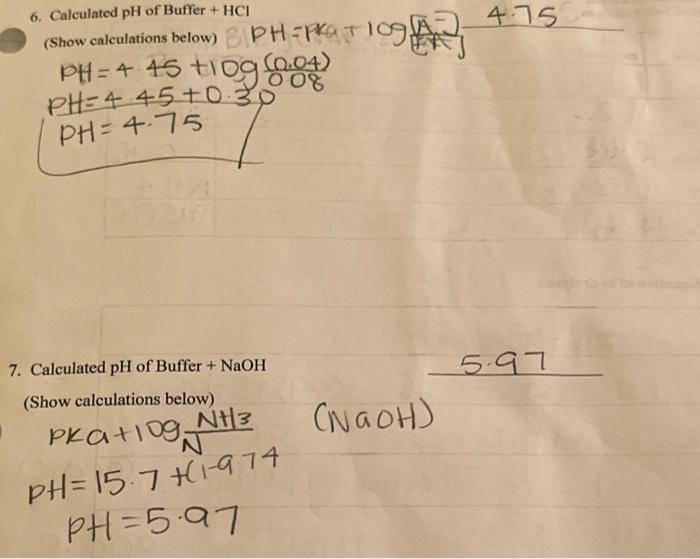 6. Calculated pH of Buffer + HCl 4.75
(Show calculations below) PH=PKa+log[A-]
PH=4.45+log(0.04)
0.08
PH=4.45+0.30
PH=4.75
7. Calculated pH of Buffer + NaOH 5.97
(Show calculations below)
PKa+log NH3 (NaOH)
N
PH=15.7+(1-974
PH=5.97